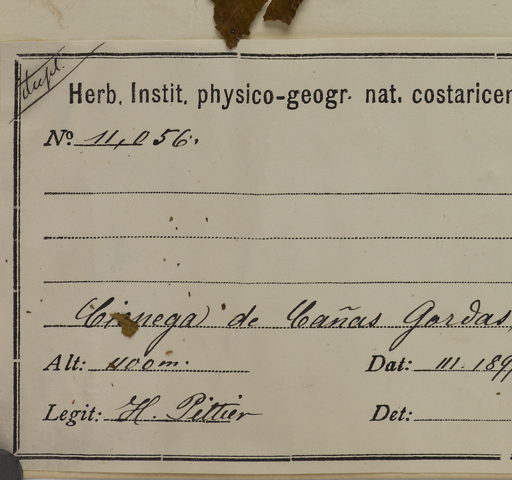 dupl.
Herb. Instit. physico-geogr. nat. costaricen
No. 11,056.
Cienega de Cañas Gordas,
Alt: 400 m. Dat: III. 189
Legit: H. Pittier Det: